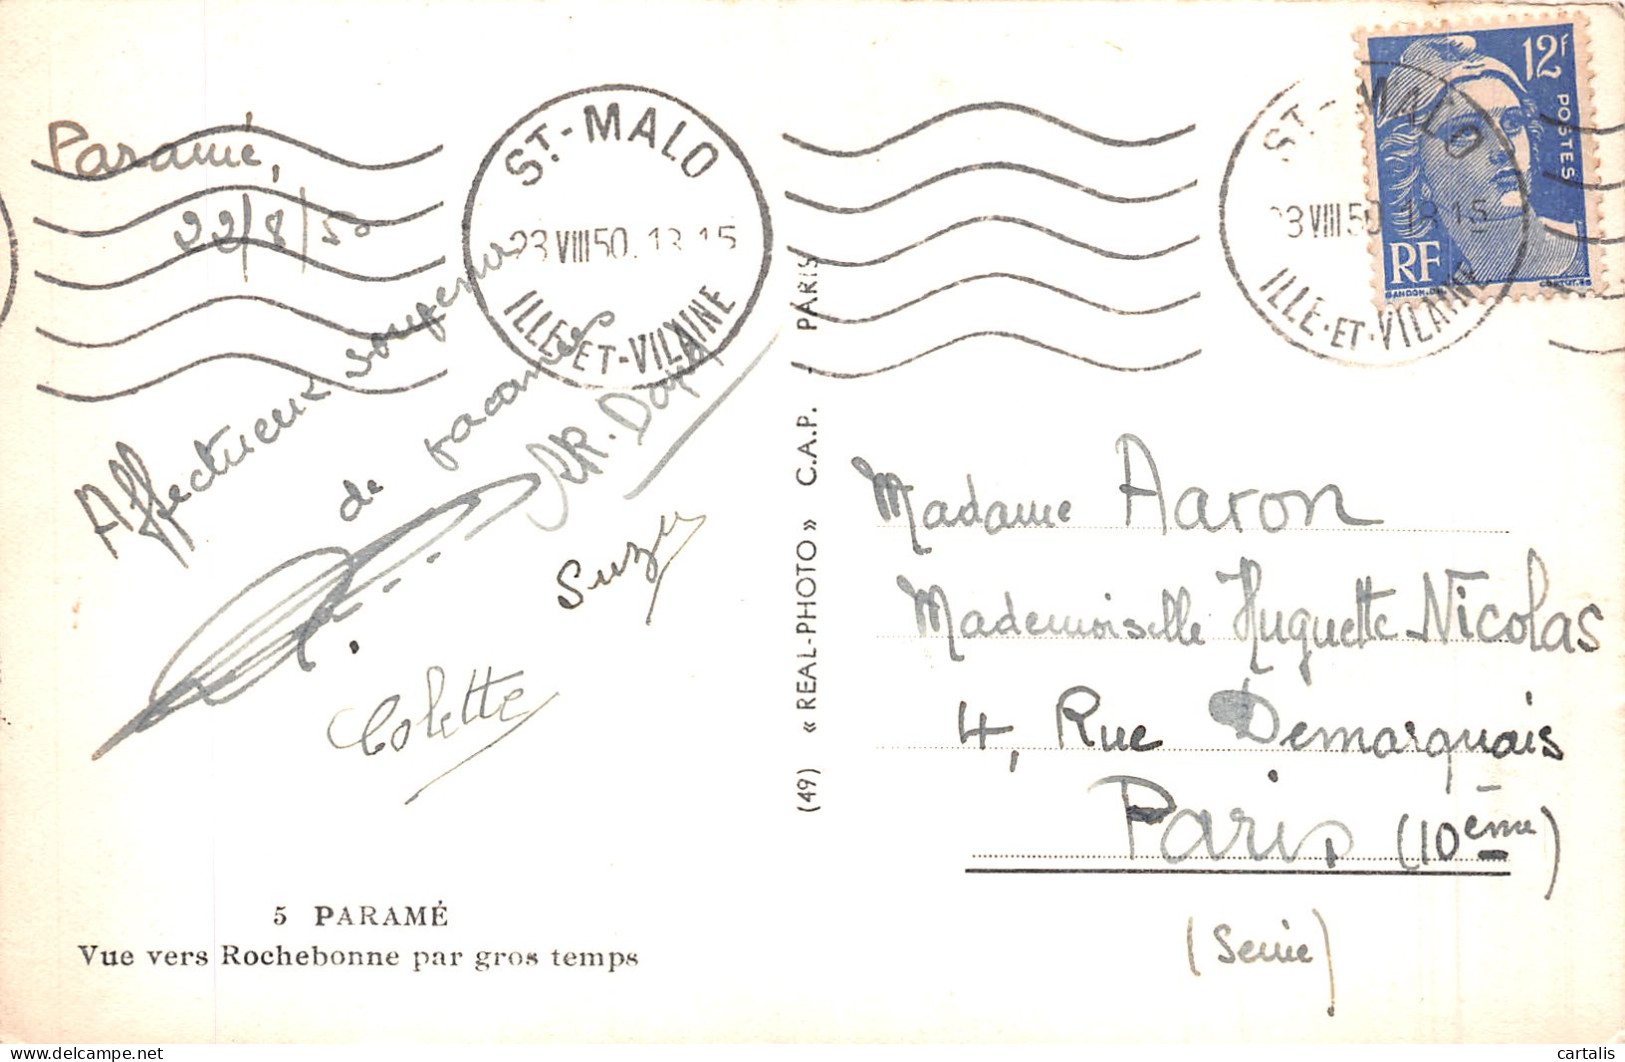 Paramé,
22/8/50
ST.-MALO
23 VIII 50. 18 15
ILLE-ET-VILAINE
Affectueux souvenirs
de vacances
Suzy
Colette
5 PARAMÉ
Vue vers Rochebonne par gros temps
(49) « REAL-PHOTO » C.A.P. - PARIS
12F
POSTES
RF
GANDON
CORTOT.SC
ST.-MALO
3 VIII 50. 18 15
ILLE-ET-VILAINE
Madame Aaron
Mademoiselle Huguette Nicolas
4, Rue Demarquais
Paris (10ème)
(Seine)
cartalis